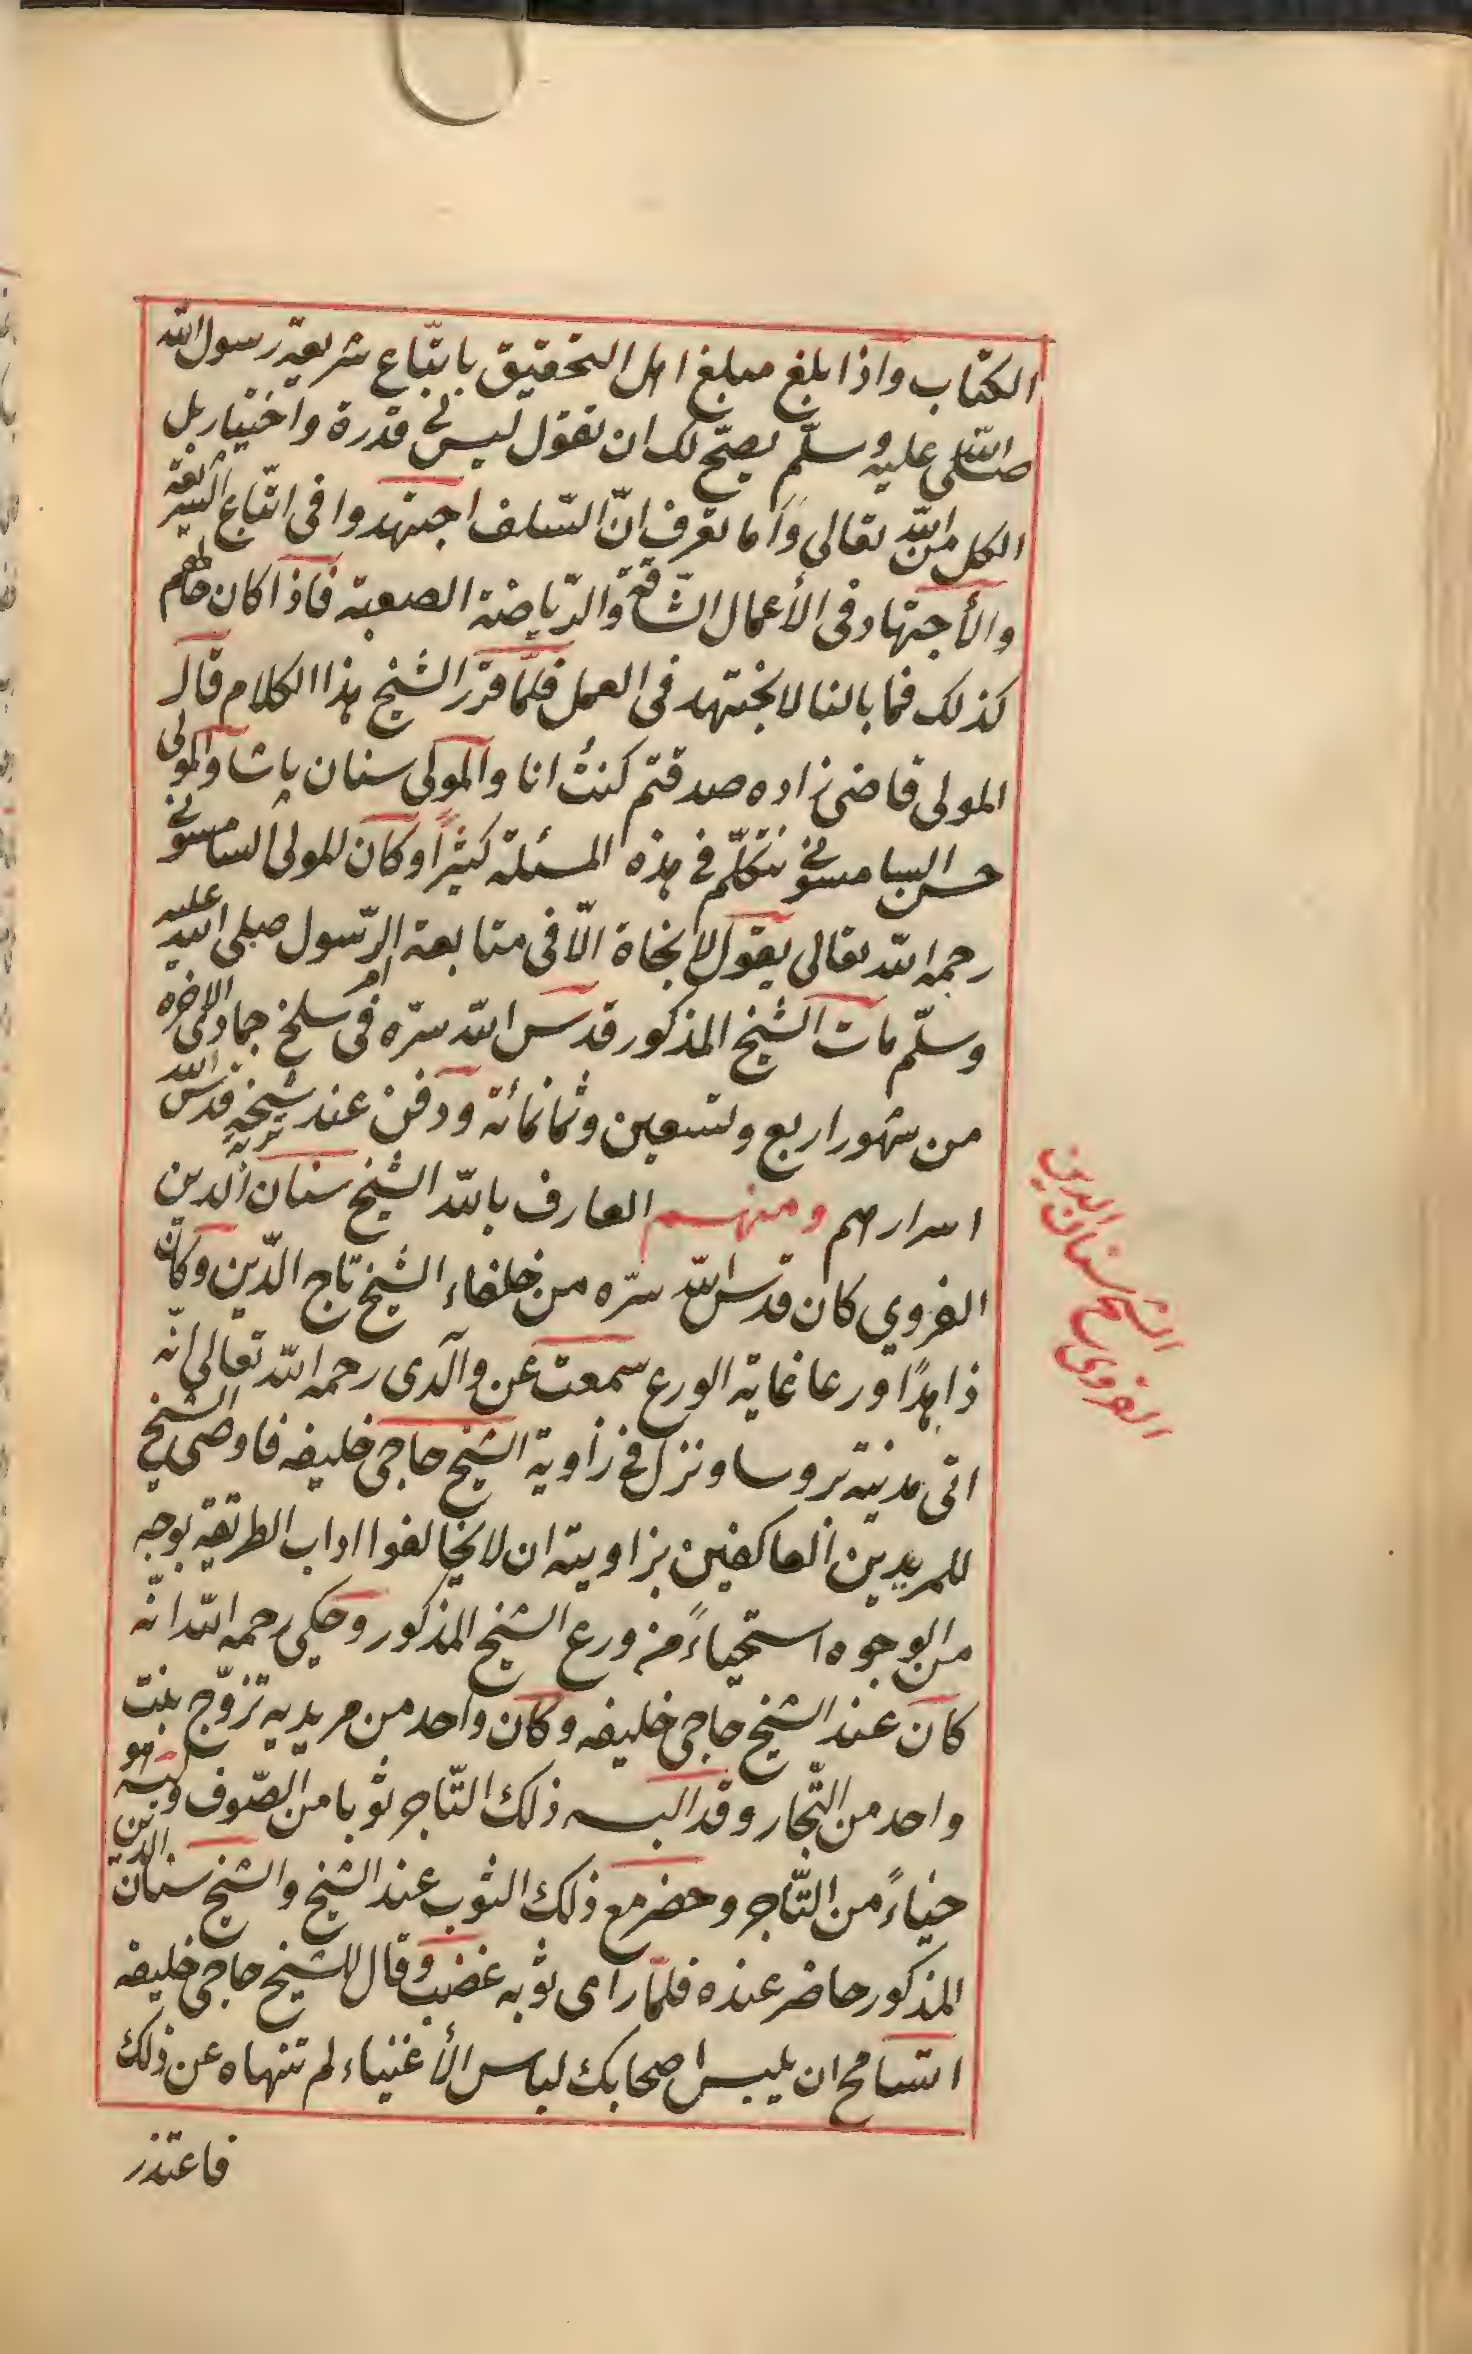 الكتاب واذا بلغ مبلغ اهل التحقيق باتّباع شريعة رسول الله
صلى الله عليه وسلّم يصحّ لك ان تقول ليس لى قدرة واختيار بل
الكل من الله تعالى وأما تعرف انّ السّلف اجتهدوا فى اتّباع الشريعة
والأجتهاد فى الأعمال الشّاقّة والرّياضة الصعبة فاذا كان حالهم
كذلك فما بالنا لا نجتهد فى العمل فلمّا قرّر الشيخ هذا الكلام قال
المولى قاضى زاده صدقتم كنتُ انا والمولى سنان پاشا والمولى
حسن السامسونى نتكلّم فى هذه المسئلة كثيراً وكان للمولى السامسونى
رحمه الله تعالى يقول لا نجاة الّا فى متابعة الرّسول صلى الله عليه
وسلّم مات الشيخ المذكور قدس الله سرّه فى سلخ جمادى الاخره
من شهور اربع وتسعين وثمانمائة ودفن عند شيخيه قدس الله
اسرارهم ومنهم العارف بالله الشيخ سنان الدين
الفروي كان قدس الله سرّه من خلفاء الشيخ تاج الدّين وكان
ذاهدًا ورعا غاية الورع سمعت عن والدى رحمه الله تعالى انّه
اتى مدينة بروسا ونزل فى زاوية الشيخ حاجى خليفه فاوصى الشيخ
للمريدين العاكفين بزاويته ان لا يخالفوا اداب الطريقة بوجه
من الوجوه استحياءً من ورع الشيخ المذكور وحكى رحمه الله انّه
كان عند الشيخ حاجى خليفه وكان واحد من مريديه تزوّج بنت
واحد من التّجار وقد البسه ذلك التّاجر ثوبا من الصّوف ولبسه هو
حياءً من التّاجر وحضر مع ذلك الثوب عند الشيخ والشيخ سنان الدين
المذكور حاضر عنده فلمّا راى ثوبه غضب وقال للشيخ حاجى خليفه
اتسامح ان يلبس اصحابك لباس الأغنياء لم تنهاه عن ذلك
فاعتذر
الشيخ سنان الدين
الفروى